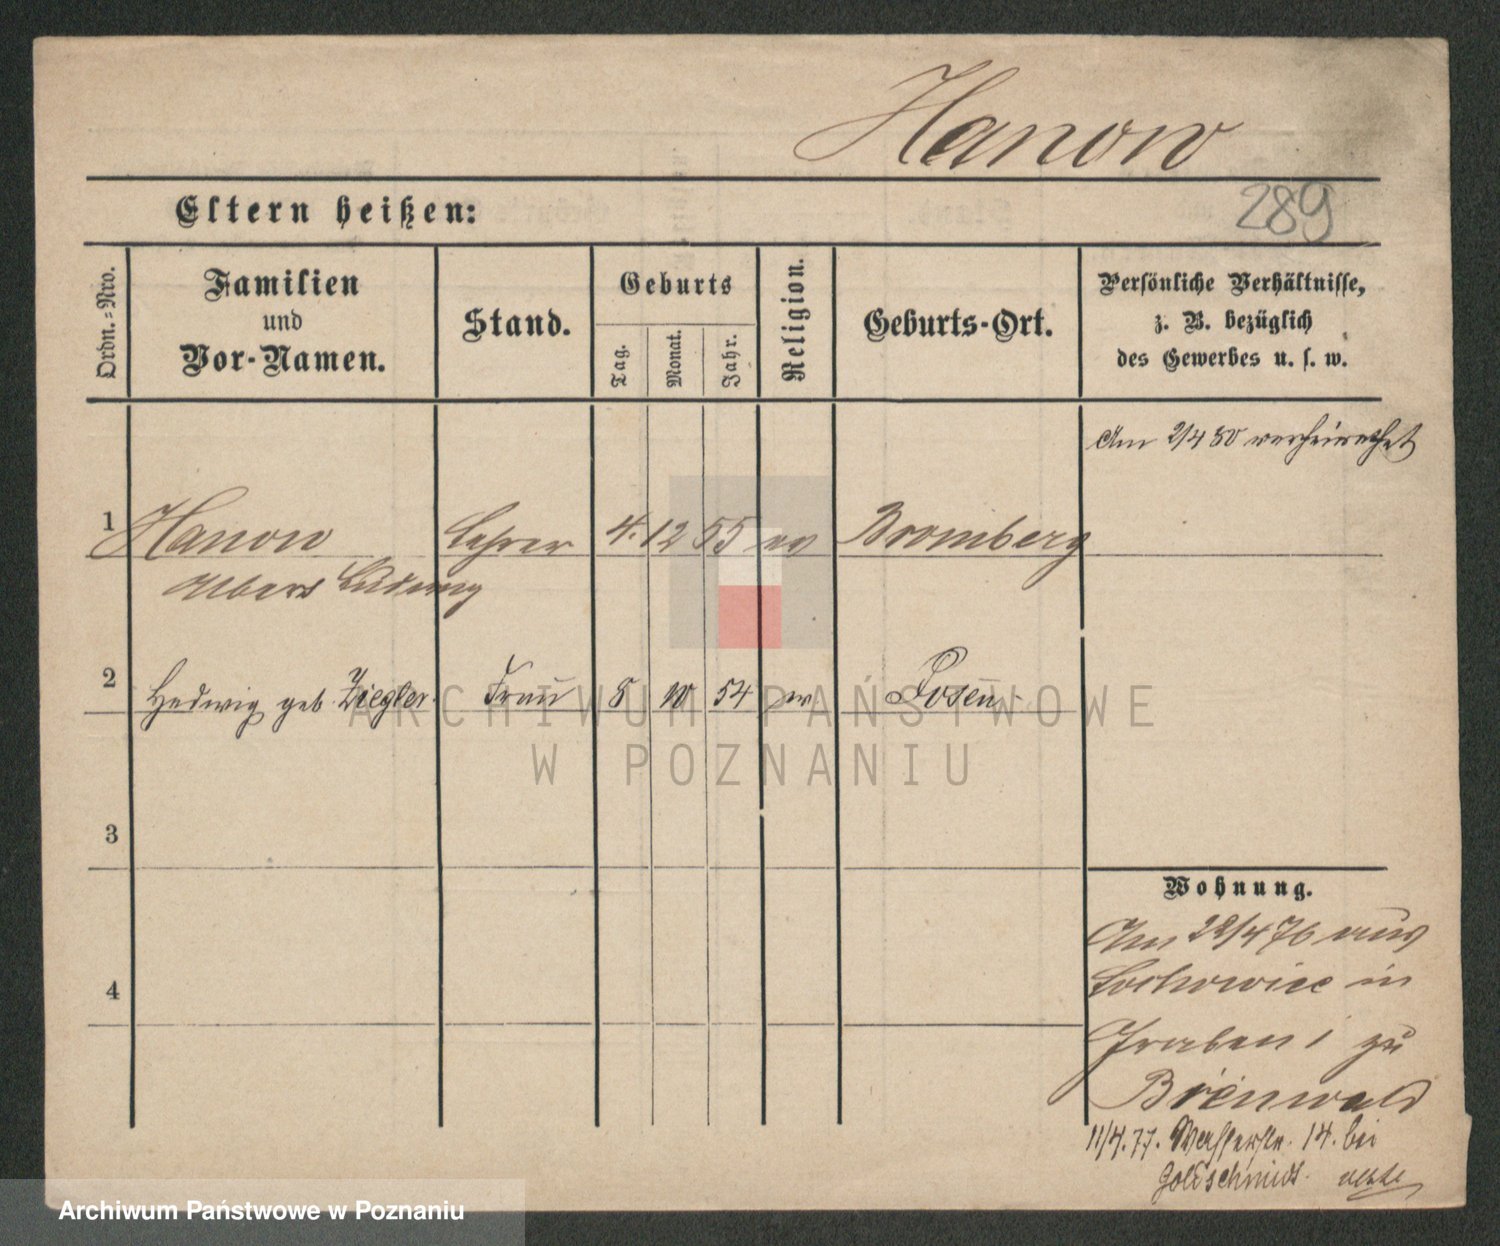 Hanow
289
Eltern heißen:
Ordn.=Nro.
Familien
und
Vor-Namen.
Stand.
Geburts
Tag.
Monat.
Jahr.
Religion.
Geburts-Ort.
Persönliche Verhältnisse,
z. B. bezüglich
des Gewerbes u. s. w.
Am 2/4 80 verheirathet
1 Hanow Lehrer 4. 12 55 ev Bromberg
Albert Ludwig
2 Hedwig geb. Ziegler. Frau 8 10 54 ev Posen
ARCHIWUM PAŃSTWOWE
W POZNANIU
3
Wohnung.
Am 22/4 76 aus
in
4
Graben 1 zu
Bienwald
11/4. 77. Wasserstr. 14. bei
Goldschmidt.
Archiwum Państwowe w Poznaniu